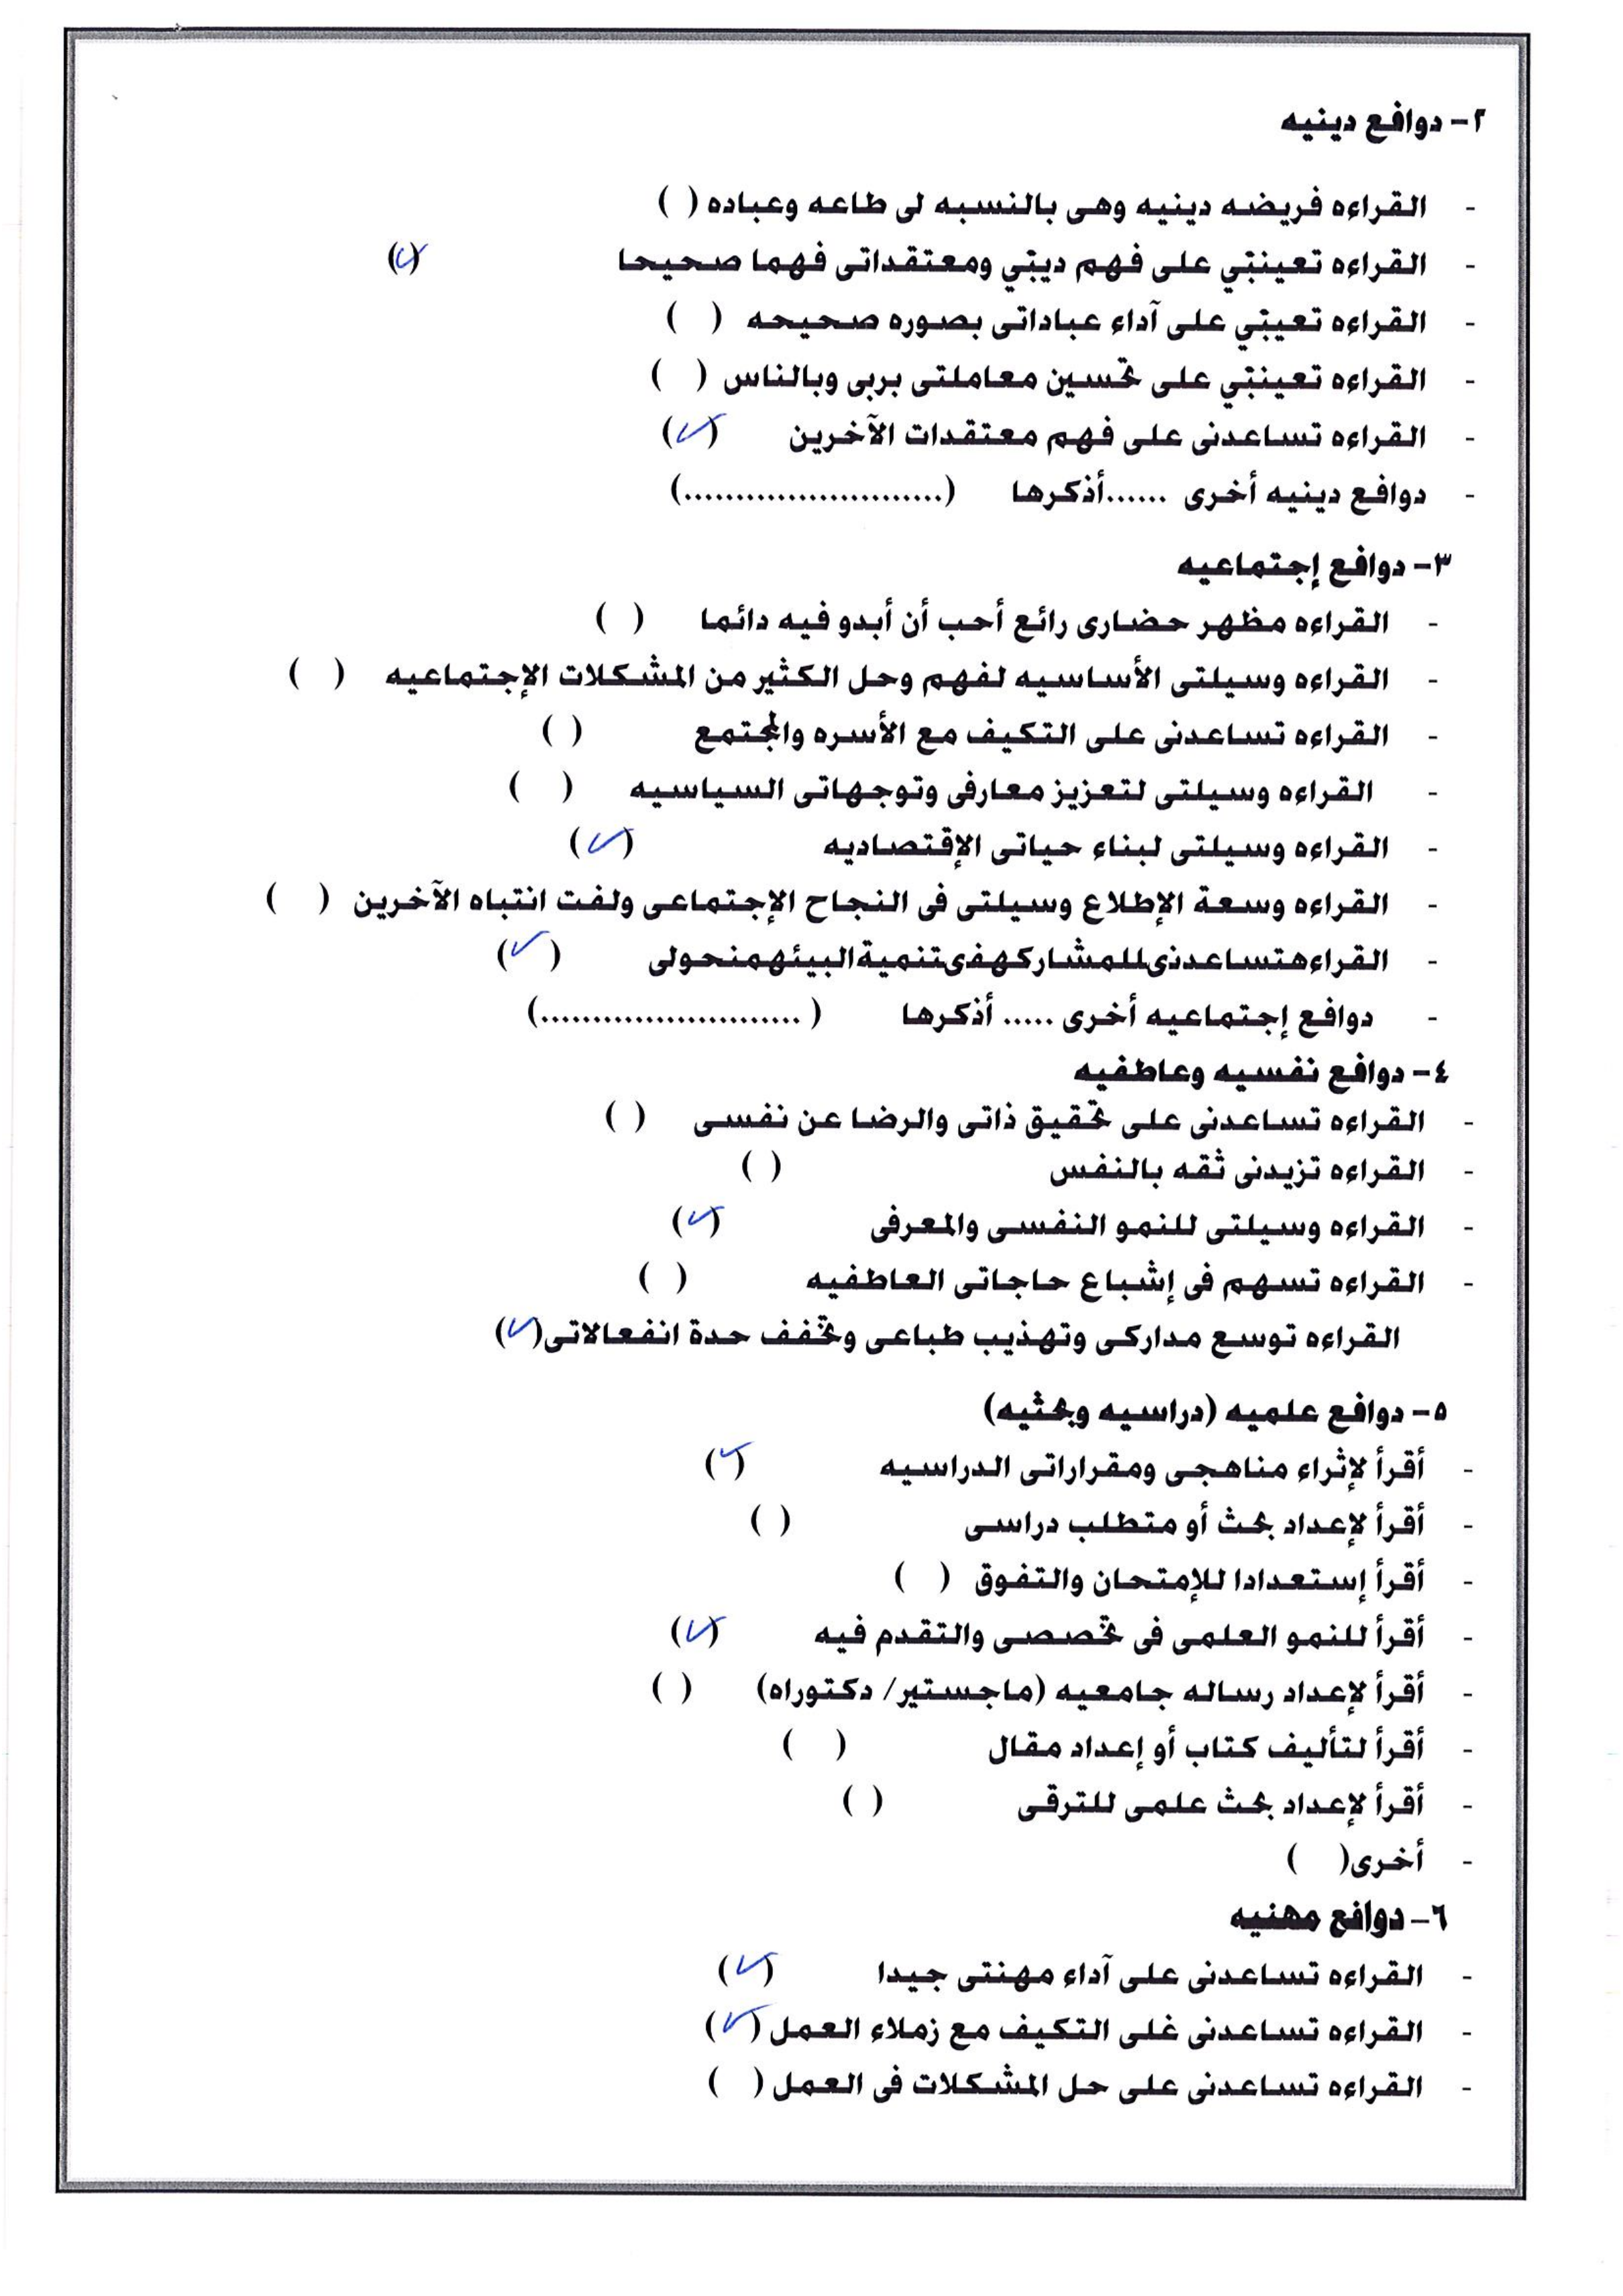 ٢- دوافع دينيه
- القراءه فريضه دينيه وهى بالنسبه لى طاعه وعباده ( )
- القراءه تعيننى على فهم دينى ومعتقداتى فهما صحيحا (✓)
- القراءه تعينى على آداء عباداتى بصوره صحيحه ( )
- القراءه تعيننى على تحسين معاملتى بربى وبالناس ( )
- القراءه تساعدنى على فهم معتقدات الآخرين (✓)
- دوافع دينيه أخرى ......أذكرها (.........................)
٣- دوافع إجتماعيه
- القراءه مظهر حضارى رائع أحب أن أبدو فيه دائما ( )
- القراءه وسيلتى الأساسيه لفهم وحل الكثير من المشكلات الإجتماعيه ( )
- القراءه تساعدنى على التكيف مع الأسره والمجتمع ( )
- القراءه وسيلتى لتعزيز معارفى وتوجهاتى السياسيه ( )
- القراءه وسيلتى لبناء حياتى الإقتصاديه (✓)
- القراءه وسعة الإطلاع وسيلتى فى النجاح الإجتماعى ولفت انتباه الآخرين ( )
- القراءهتساعدنىللمشاركهفىتنميةالبيئهمنحولى (✓)
- دوافع إجتماعيه أخرى ..... أذكرها ( .........................)
٤- دوافع نفسيه وعاطفيه
- القراءه تساعدنى على تحقيق ذاتى والرضا عن نفسى ( )
- القراءه تزيدنى ثقه بالنفس ( )
- القراءه وسيلتى للنمو النفسى والمعرفى (✓)
- القراءه تسهم فى إشباع حاجاتى العاطفيه ( )
القراءه توسع مداركى وتهذيب طباعى وتخفف حدة انفعالاتى(✓)
٥- دوافع علميه (دراسيه وبحثيه)
- أقرأ لإثراء مناهجى ومقراراتى الدراسيه (✓)
- أقرأ لإعداد بحث أو متطلب دراسى ( )
- أقرأ إستعدادا للإمتحان والتفوق ( )
- أقرأ للنمو العلمى فى تخصصى والتقدم فيه (✓)
- أقرأ لإعداد رساله جامعيه (ماجستير/ دكتوراه) ( )
- أقرأ لتأليف كتاب أو إعداد مقال ( )
- أقرأ لإعداد بحث علمى للترقى ( )
- أخرى( )
٦- دوافع مهنيه
- القراءه تساعدنى على آداء مهنتى جيدا (✓)
- القراءه تساعدنى غلى التكيف مع زملاء العمل (✓)
- القراءه تساعدنى على حل المشكلات فى العمل ( )